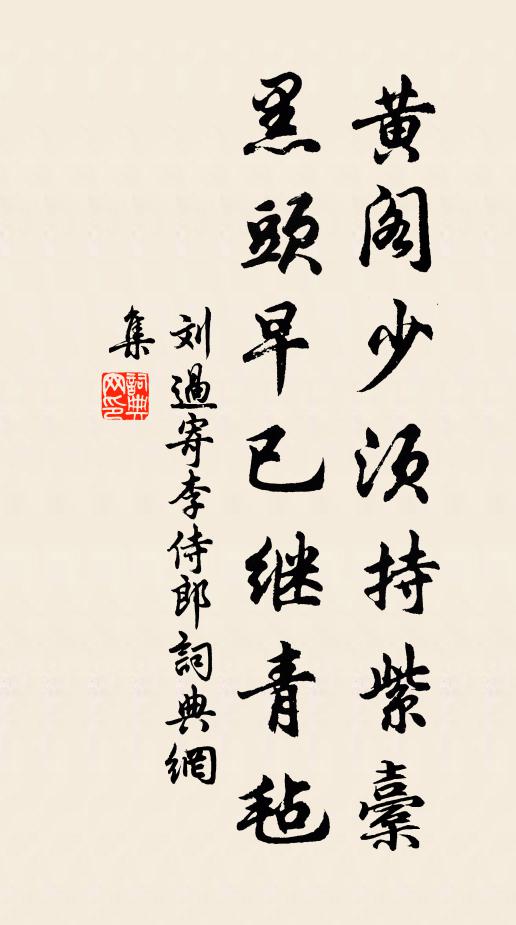 黄阁少须持紫橐
黑頭早已继青毡
刘過寄李侍郎詞典網
集
詞典
网印